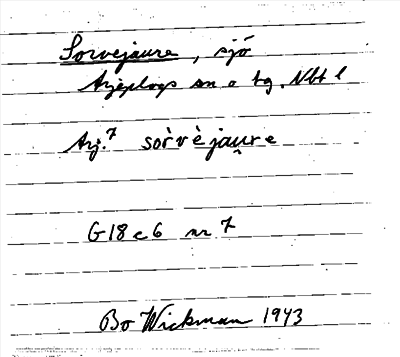 Sorvejaure, sjö
Arjeplogs sn o tg. Nbt l
Arj.7 sòrvèjau̯re
G18c6 nr 7
Bo Wickman 1943